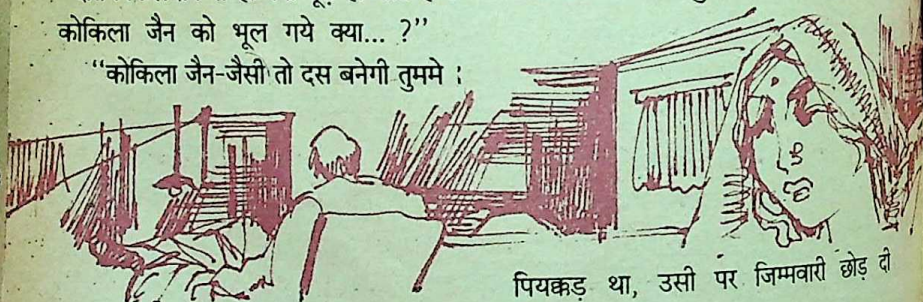 कोकिला जैन को भूल गये क्या... ?”
“कोकिला जैन-जैसी तो दस बनेगी तुममे :
पियक्कड़ था, उसी पर जिम्मवारी छोड़ दी